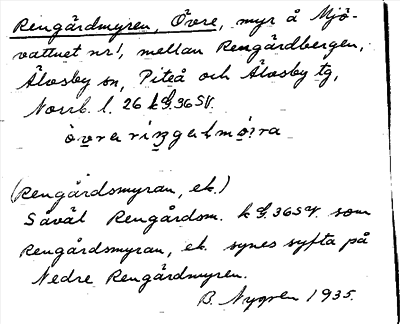 Rengårdmyren, Övre, myr å Mjö-
vattnet nr 1, mellan Rengårdbergen,
Älvsby sn, Piteå och Älvsby tg,
Norrb. l. 26 kbl. 36 SV.
(Rengårdsmyran, ek.)
Såväl Rengårdsm. kbl. 36 SV. som
Rengårdsmyran, ek. synes syfta på
Nedre Rengårdmyren.
B. Nygren 1935.